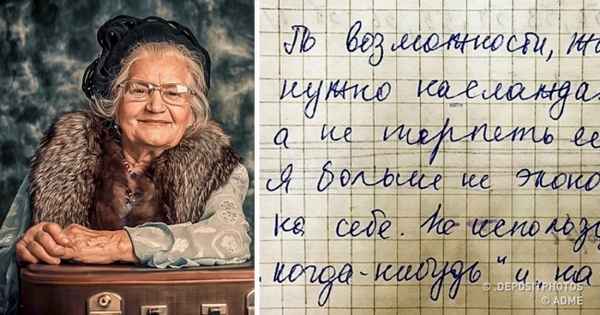 По возможности, жи
нужно наслажда
а не терпеть её
Я больше не эконо
на себе. Не использу
"когда-нибудь" и "на
© DEPOSITPHOTOS
© ADME